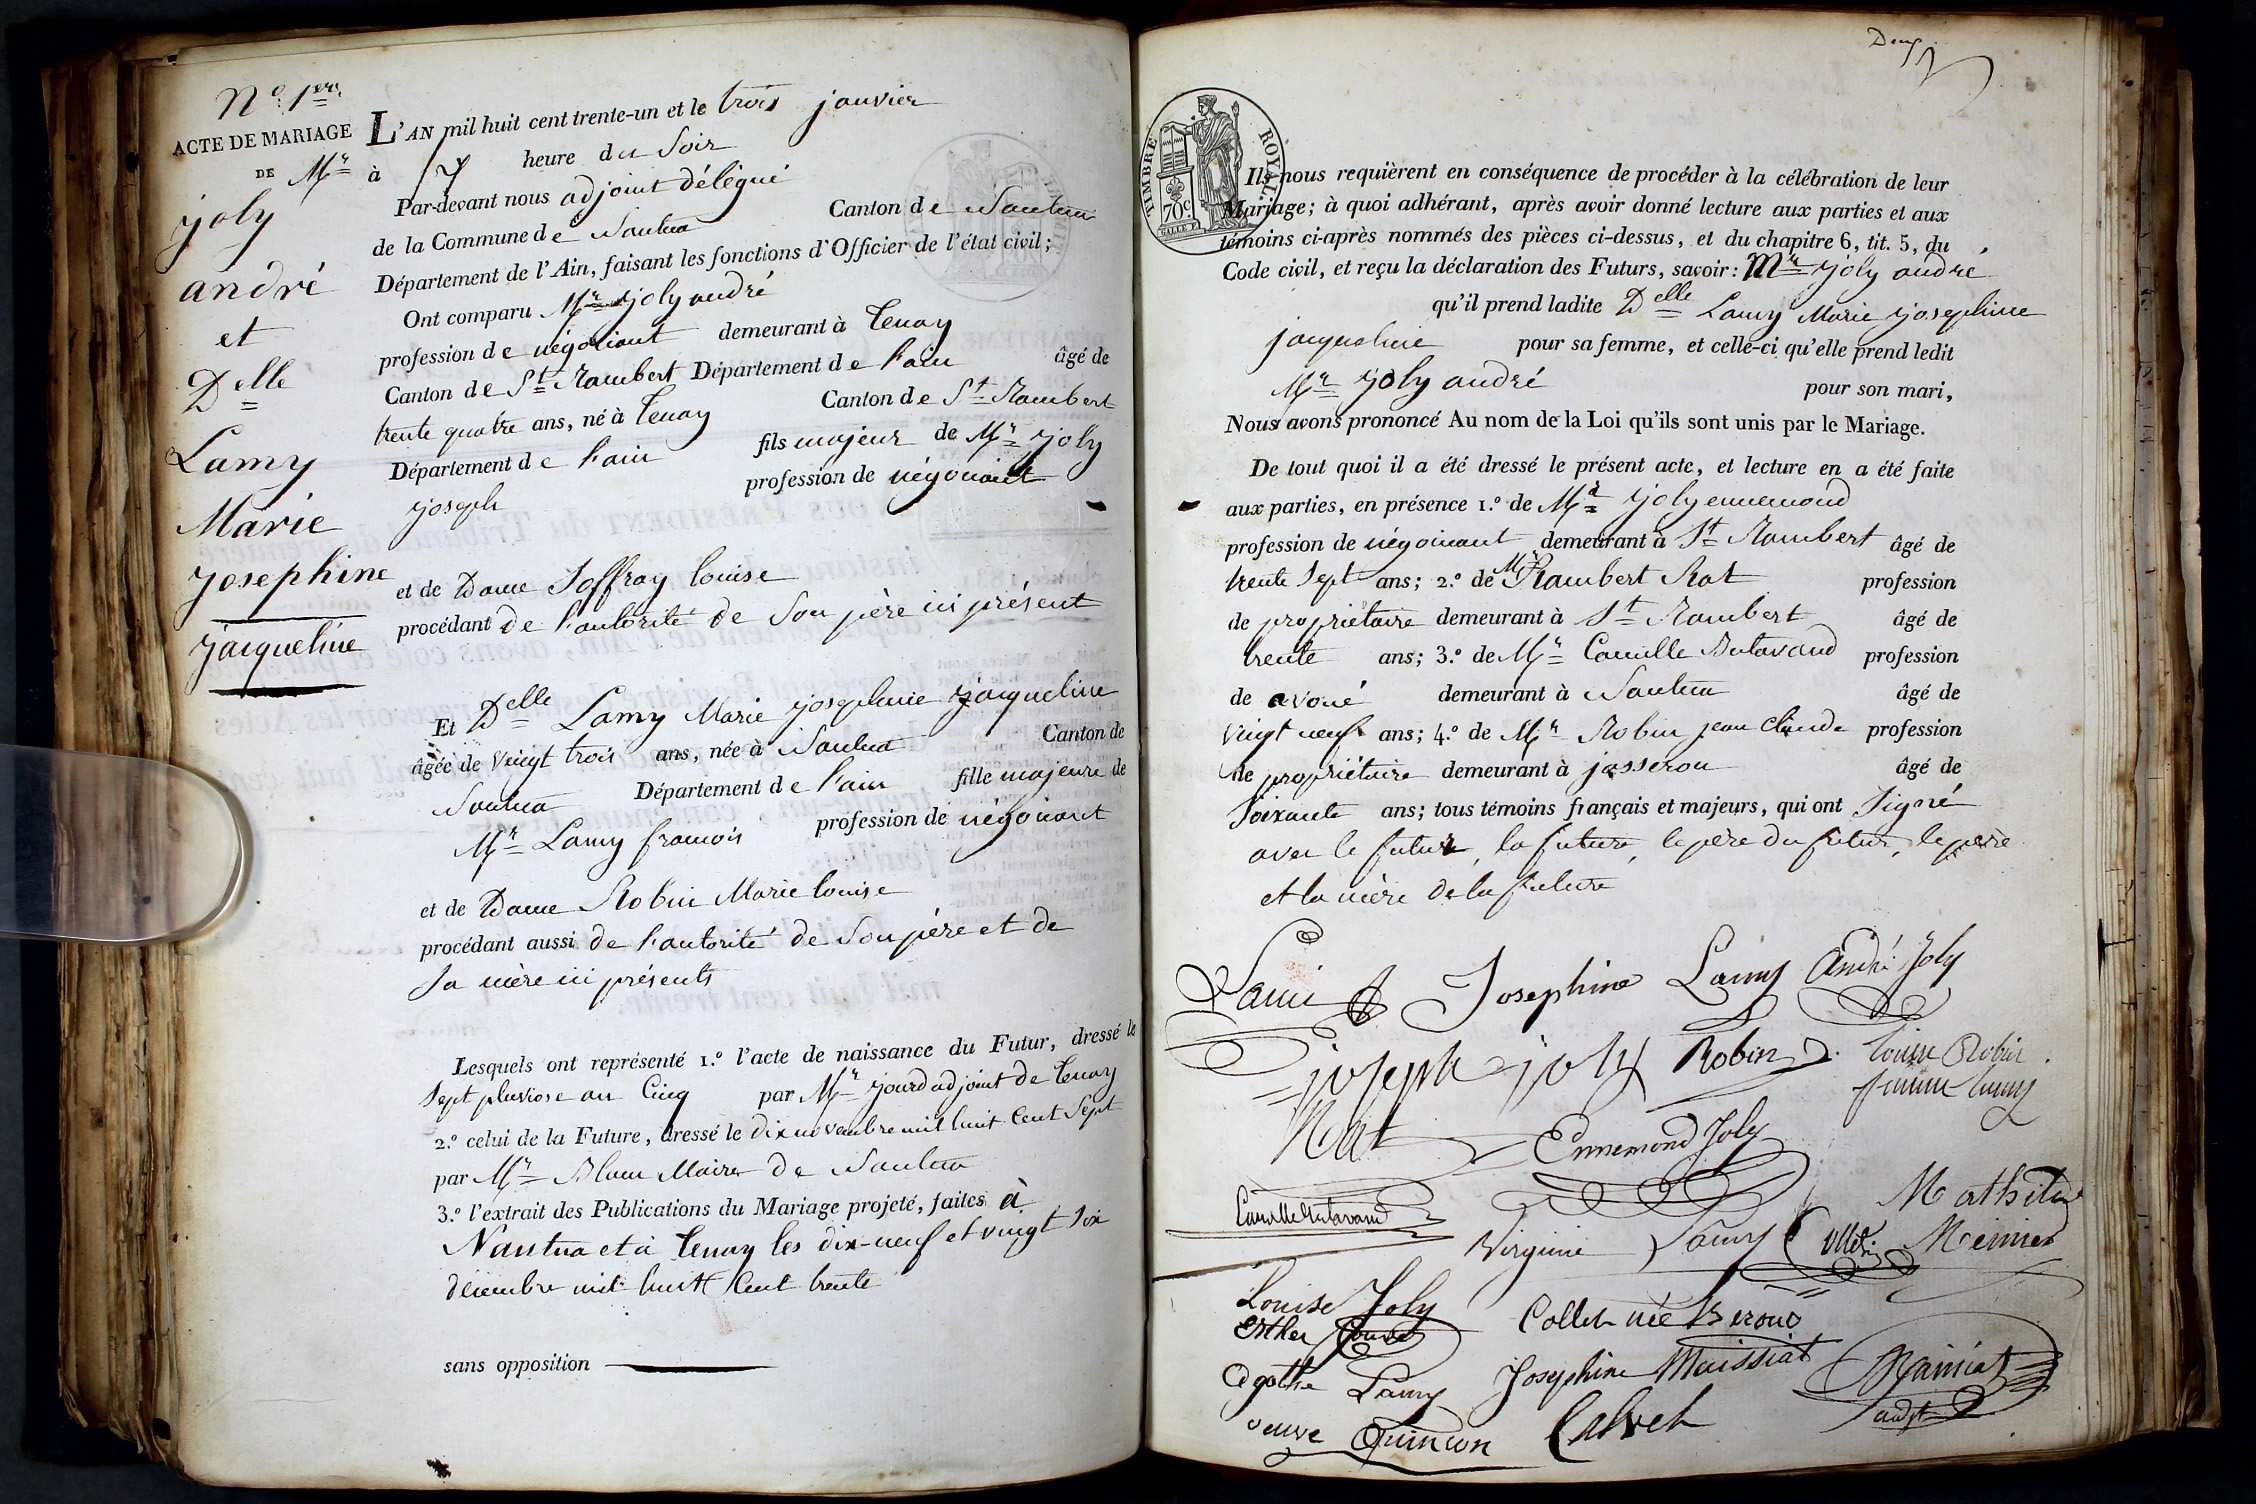 N.º 1.er
ACTE DE MARIAGE
DE M.r
joly
andré
et
D.elle
Lamy
Marie
josephine
jacqueline
L'AN mil huit cent trente-un et le trois janvier
à 7 heure du soir
Par-devant nous adjoint délégué
de la Commune de Nantua Canton de Nantua
Département de l'Ain, faisant les fonctions d'Officier de l'état civil;
Ont comparu M.r joly andré
profession de négociant demeurant à Tenay
Canton de S.t Rambert Département de l'ain âgé de
trente quatre ans, né à Tenay Canton de S.t Rambert
Département de l'ain fils majeur de M.r joly
joseph profession de négociant
et de Dame Joffray louise
procédant de l'autorité de son père ici présent
Et D.elle Lamy Marie josephine jacqueline
âgée de vingt trois ans, née à Nantua Canton de
Nantua Département de l'ain fille majeure de
M.r Lamy francois profession de négociant
et de Dame Robin Marie louise
procédant aussi de l'autorité de son père et de
sa mère ici présents
Lesquels ont représenté 1.º l'acte de naissance du Futur, dressé le
sept pluviose an Cinq par M.r jourd adjoint de Tenay
2.º celui de la Future, dressé le dix novembre mil huit Cent sept
par M.r Maire de Nantua
3.º l'extrait des Publications du Mariage projeté, faites à
Nantua et à Tenay les dix-neuf et vingt six
décembre mil huit Cent trente
sans opposition
Deux
TIMBRE ROYAL
70c
Ils nous requièrent en conséquence de procéder à la célébration de leur
Mariage; à quoi adhérant, après avoir donné lecture aux parties et aux
témoins ci-après nommés des pièces ci-dessus, et du chapitre 6, tit. 5, du
Code civil, et reçu la déclaration des Futurs, savoir: M.r joly andré
qu'il prend ladite D.elle Lamy Marie josephine
jacqueline pour sa femme, et celle-ci qu'elle prend ledit
M.r joly andré pour son mari,
Nous avons prononcé Au nom de la Loi qu'ils sont unis par le Mariage.
De tout quoi il a été dressé le présent acte, et lecture en a été faite
aux parties, en présence 1.º de M.r joly ennemond
profession de négociant demeurant à S.t Rambert âgé de
trente sept ans; 2.º de M.r Rambert Rat profession
de propriétaire demeurant à S.t Rambert âgé de
trente ans; 3.º de M.r Camille Butavand profession
de avoué demeurant à Nantua âgé de
vingt neuf ans; 4.º de M.r Robin jean Claude profession
de propriétaire demeurant à josseron âgé de
soixante ans; tous témoins français et majeurs, qui ont signé
avec le futur, la future, le père du futur, le père
et la mère de la future
Lami Josephine Lamy André Joly
joseph joly Robin louise Robin
femme lamy
Rat Ennemond Joly
Camille Butavand Virginie Lamy Mathilde
Meinier
Louise Joly Collet née
Esther
Agathe Lamy Josephine Maissiat
veuve Quinson Calvet adjt